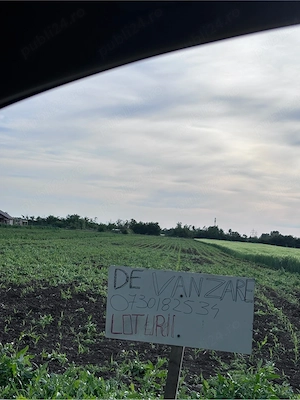 DE VANZARE
0730182539
LOTURI